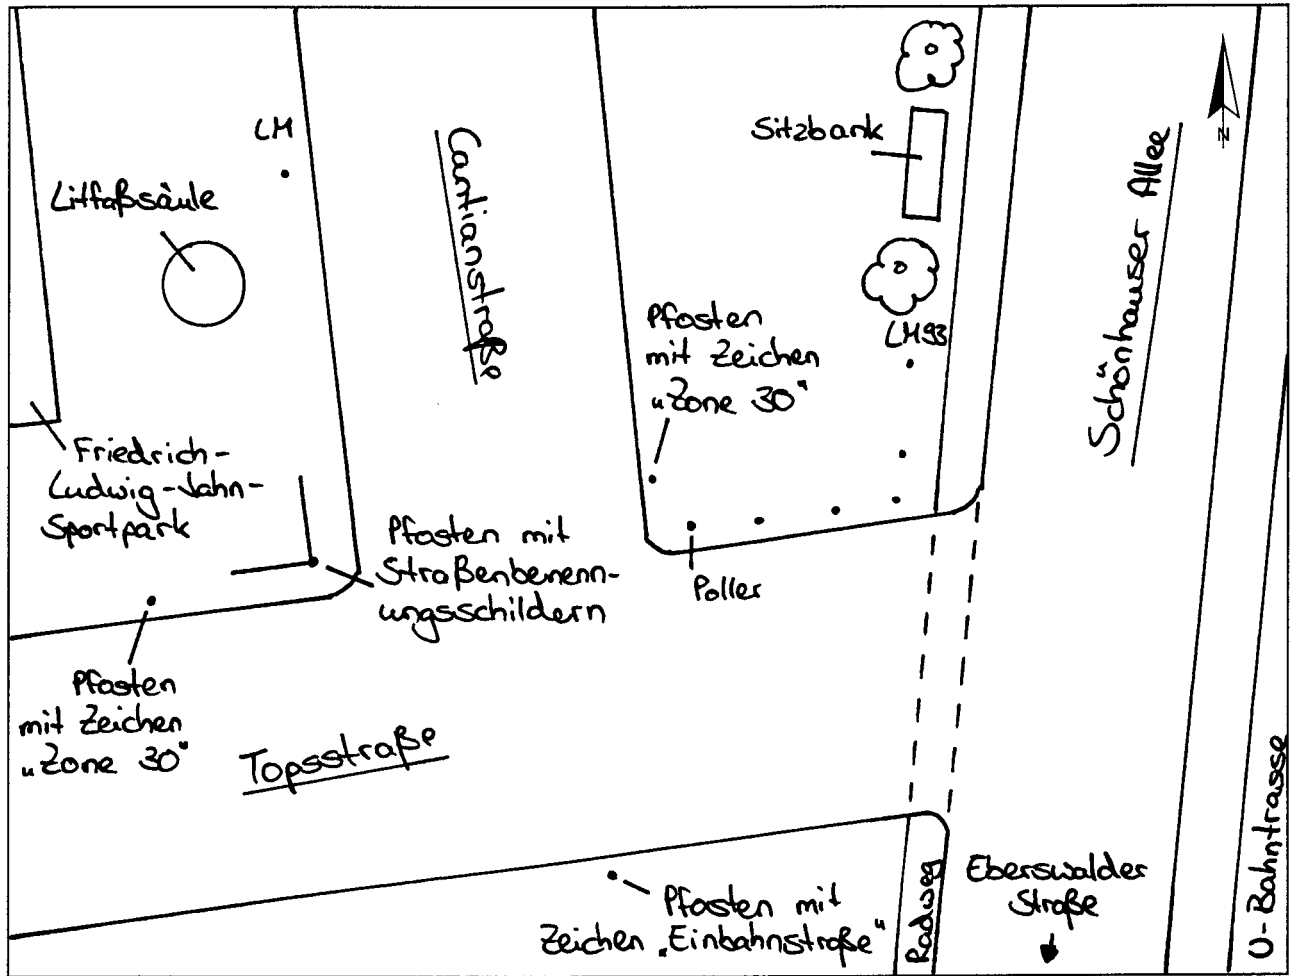 LM
Litfaßsäule
Cantianstraße
Sitzbank
N
Schönhauser Allee
Pfosten
mit Zeichen
„Zone 30"
LM93
Friedrich-
Ludwig-Jahn-
Sportpark
Pfosten mit
Straßenbenenn-
ungsschildern
Poller
Pfosten
mit Zeichen
„Zone 30"
Topsstraße
Pfosten mit
Zeichen „Einbahnstraße"
Radweg
Eberswalder
Straße
U-Bahntrasse